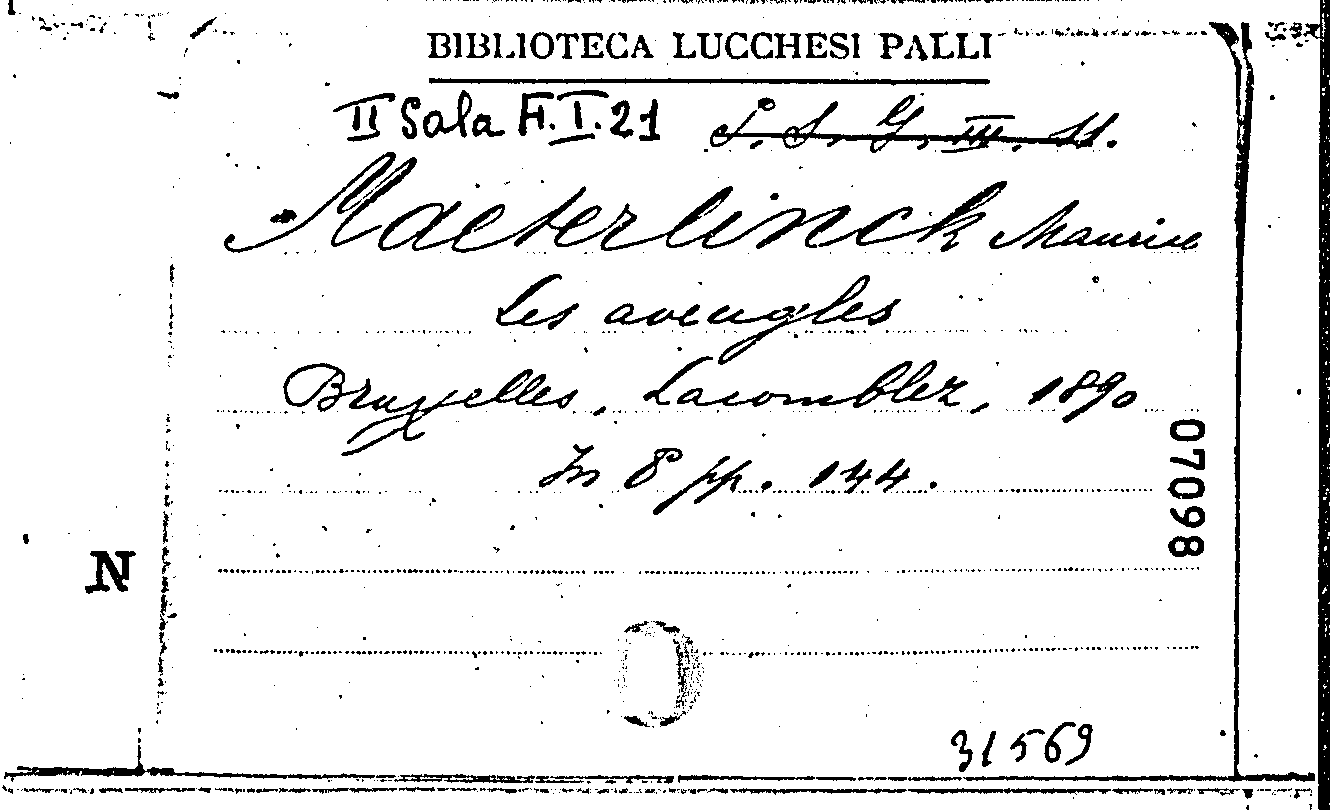 BIBLIOTECA LUCCHESI PALLI
II Sala H.I.21 S. S. G. III. 11.
Maeterlinck Maurice
Les aveugles
Bruxelles, Lacomblez, 1890
In 8° pp. 144.
07098
N
31569